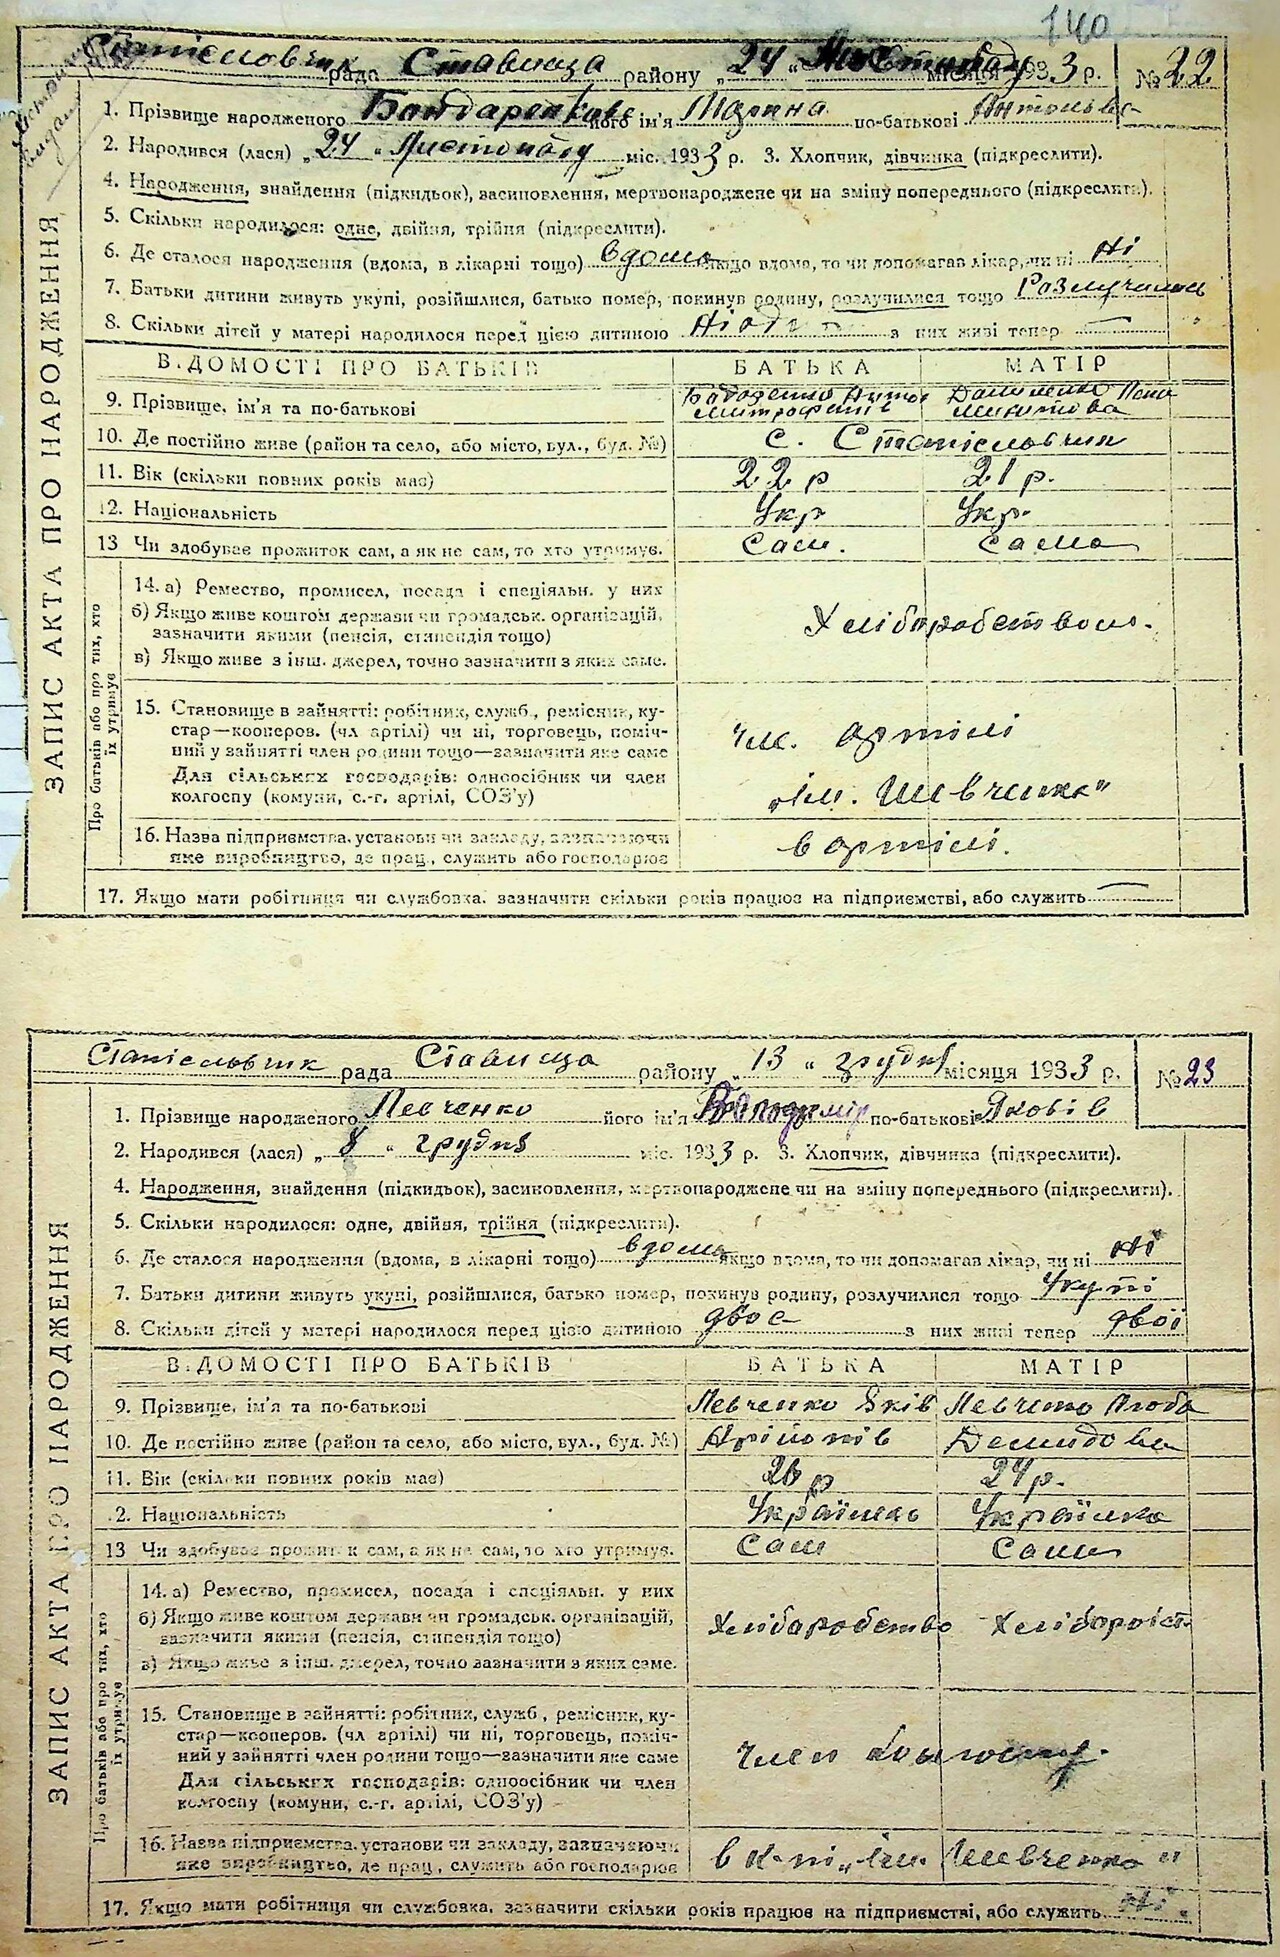 140
Станіславчик рада Ставища району „24“ Листопаду місяця 1933 р. № 22
1. Прізвище народженого Бондаренкове його ім'я Марина по-батькові Антонівна
2. Народився (лася) „24“ Листопаду міс. 1933 р. 3. Хлопчик, дівчинка (підкреслити).
4. Народження, знайдення (підкидьок), засиновлення, мертвонароджене чи на зміну попереднього (підкреслити).
5. Скільки народилося: одне, двійня, трійня (підкреслити).
6. Де сталося народження (вдома, в лікарні тощо) вдома якщо вдома, то чи допомагав лікар, чи ні Ні
7. Батьки дитини живуть укупі, розійшлися, батько помер, покинув родину, розлучилися тощо Розлучились
8. Скільки дітей у матері народилося перед цією дитиною з них живі тепер —
ЗАПИС АКТА ПРО НАРОДЖЕННЯ
ВІДОМОСТІ ПРО БАТЬКІВ БАТЬКА МАТІР
9. Прізвище, ім'я та по-батькові
Митрофанів Микитова
10. Де постійно живе (район та село, або місто, вул., буд. №) с. Станіславчик
11. Вік (скільки повних років має) 22 р 21 р.
12. Національність Укр Укр.
13 Чи здобуває прожиток сам, а як не сам, то хто утримує. Сам. Сама
Про батьків або про тих, хто їх утримує
14. а) Ремество, промисел, посада і спеціяльн. у них
б) Якщо живе коштом держави чи громадськ. організацій,
зазначити якими (пенсія, стипендія тощо) Хліборобством.
в) Якщо живе з інш. джерел, точно зазначити з яких саме.
15. Становище в зайнятті: робітник, служб., ремісник, ку-
стар—кооперов. (чл артілі) чи ні, торговець, поміч- чл. артілі
ний у зайнятті член родини тощо—зазначити яке саме
Для сільських господарів: одноосібник чи член „Ім. Шевченка"
колгоспу (комуни, с.-г. артілі, СОЗ'у)
16. Назва підприємства, установи чи закладу, зазначаючи в артілі.
яке виробництво, де прац., служить або господарює
17. Якщо мати робітниця чи службовка, зазначити скільки років працює на підприємстві, або служить —
Станіславчик рада Ставища району „13“ грудня місяця 1933 р. № 23
1. Прізвище народженого Левченко його ім'я Володимір по-батькові Яковів
2. Народився (лася) „8“ грудня міс. 1933 р. 3. Хлопчик, дівчинка (підкреслити).
4. Народження, знайдення (підкидьок), засиновлення, мертвонароджене чи на зміну попереднього (підкреслити).
5. Скільки народилося: одне, двійня, трійня (підкреслити).
6. Де сталося народження (вдома, в лікарні тощо) вдома якщо вдома, то чи допомагав лікар, чи ні Ні
7. Батьки дитини живуть укупі, розійшлися, батько помер, покинув родину, розлучилися тощо Укупі
8. Скільки дітей у матері народилося перед цією дитиною двоє з них живі тепер двоє
ЗАПИС АКТА ПРО НАРОДЖЕННЯ
ВІДОМОСТІ ПРО БАТЬКІВ БАТЬКА МАТІР
9. Прізвище, ім'я та по-батькові Левченко Яків Левченко Люба
10. Де постійно живе (район та село, або місто, вул., буд. №) Демидова
11. Вік (скільки повних років має) 26 р 24 р.
12. Національність Українець Українка
13 Чи здобуває прожиток сам, а як не сам, то хто утримує. Сам Сама
Про батьків або про тих, хто їх утримує
14. а) Ремество, промисел, посада і спеціяльн. у них
б) Якщо живе коштом держави чи громадськ. організацій, Хліборобство
зазначити якими (пенсія, стипендія тощо)
в) Якщо живе з інш. джерел, точно зазначити з яких саме.
15. Становище в зайнятті: робітник, служб., ремісник, ку-
стар—кооперов. (чл артілі) чи ні, торговець, поміч-
ний у зайнятті член родини тощо—зазначити яке саме член колгоспу.
Для сільських господарів: одноосібник чи член
колгоспу (комуни, с.-г. артілі, СОЗ'у)
16. Назва підприємства, установи чи закладу, зазначаючи в к-пі „Ім. Шевченко"
яке виробництво, де прац., служить або господарює
17. Якщо мати робітниця чи службовка, зазначити скільки років працює на підприємстві, або служить Ні.